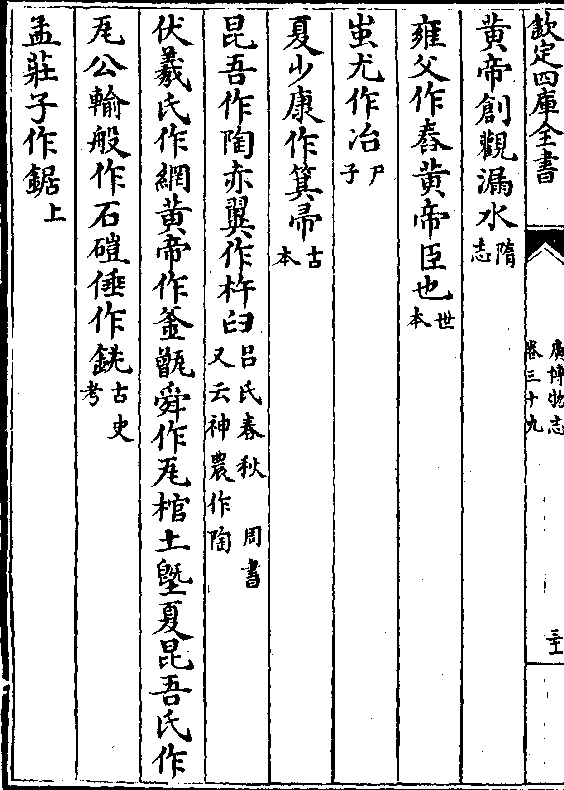 欽定四庫全書
廣博物志
卷三十九
三十一
黄帝創觀漏水隋志
雍父作舂黄帝臣也世本
蚩尤作冶尸子
夏少康作箕帚古本
昆吾作陶赤翼作杵臼吕氏春秋　周書又云神農作陶
伏羲氏作網黄帝作釜甑舜作瓦棺土塈夏昆吾氏作
瓦公輸般作石磑倕作銚古史考
孟莊子作鋸上